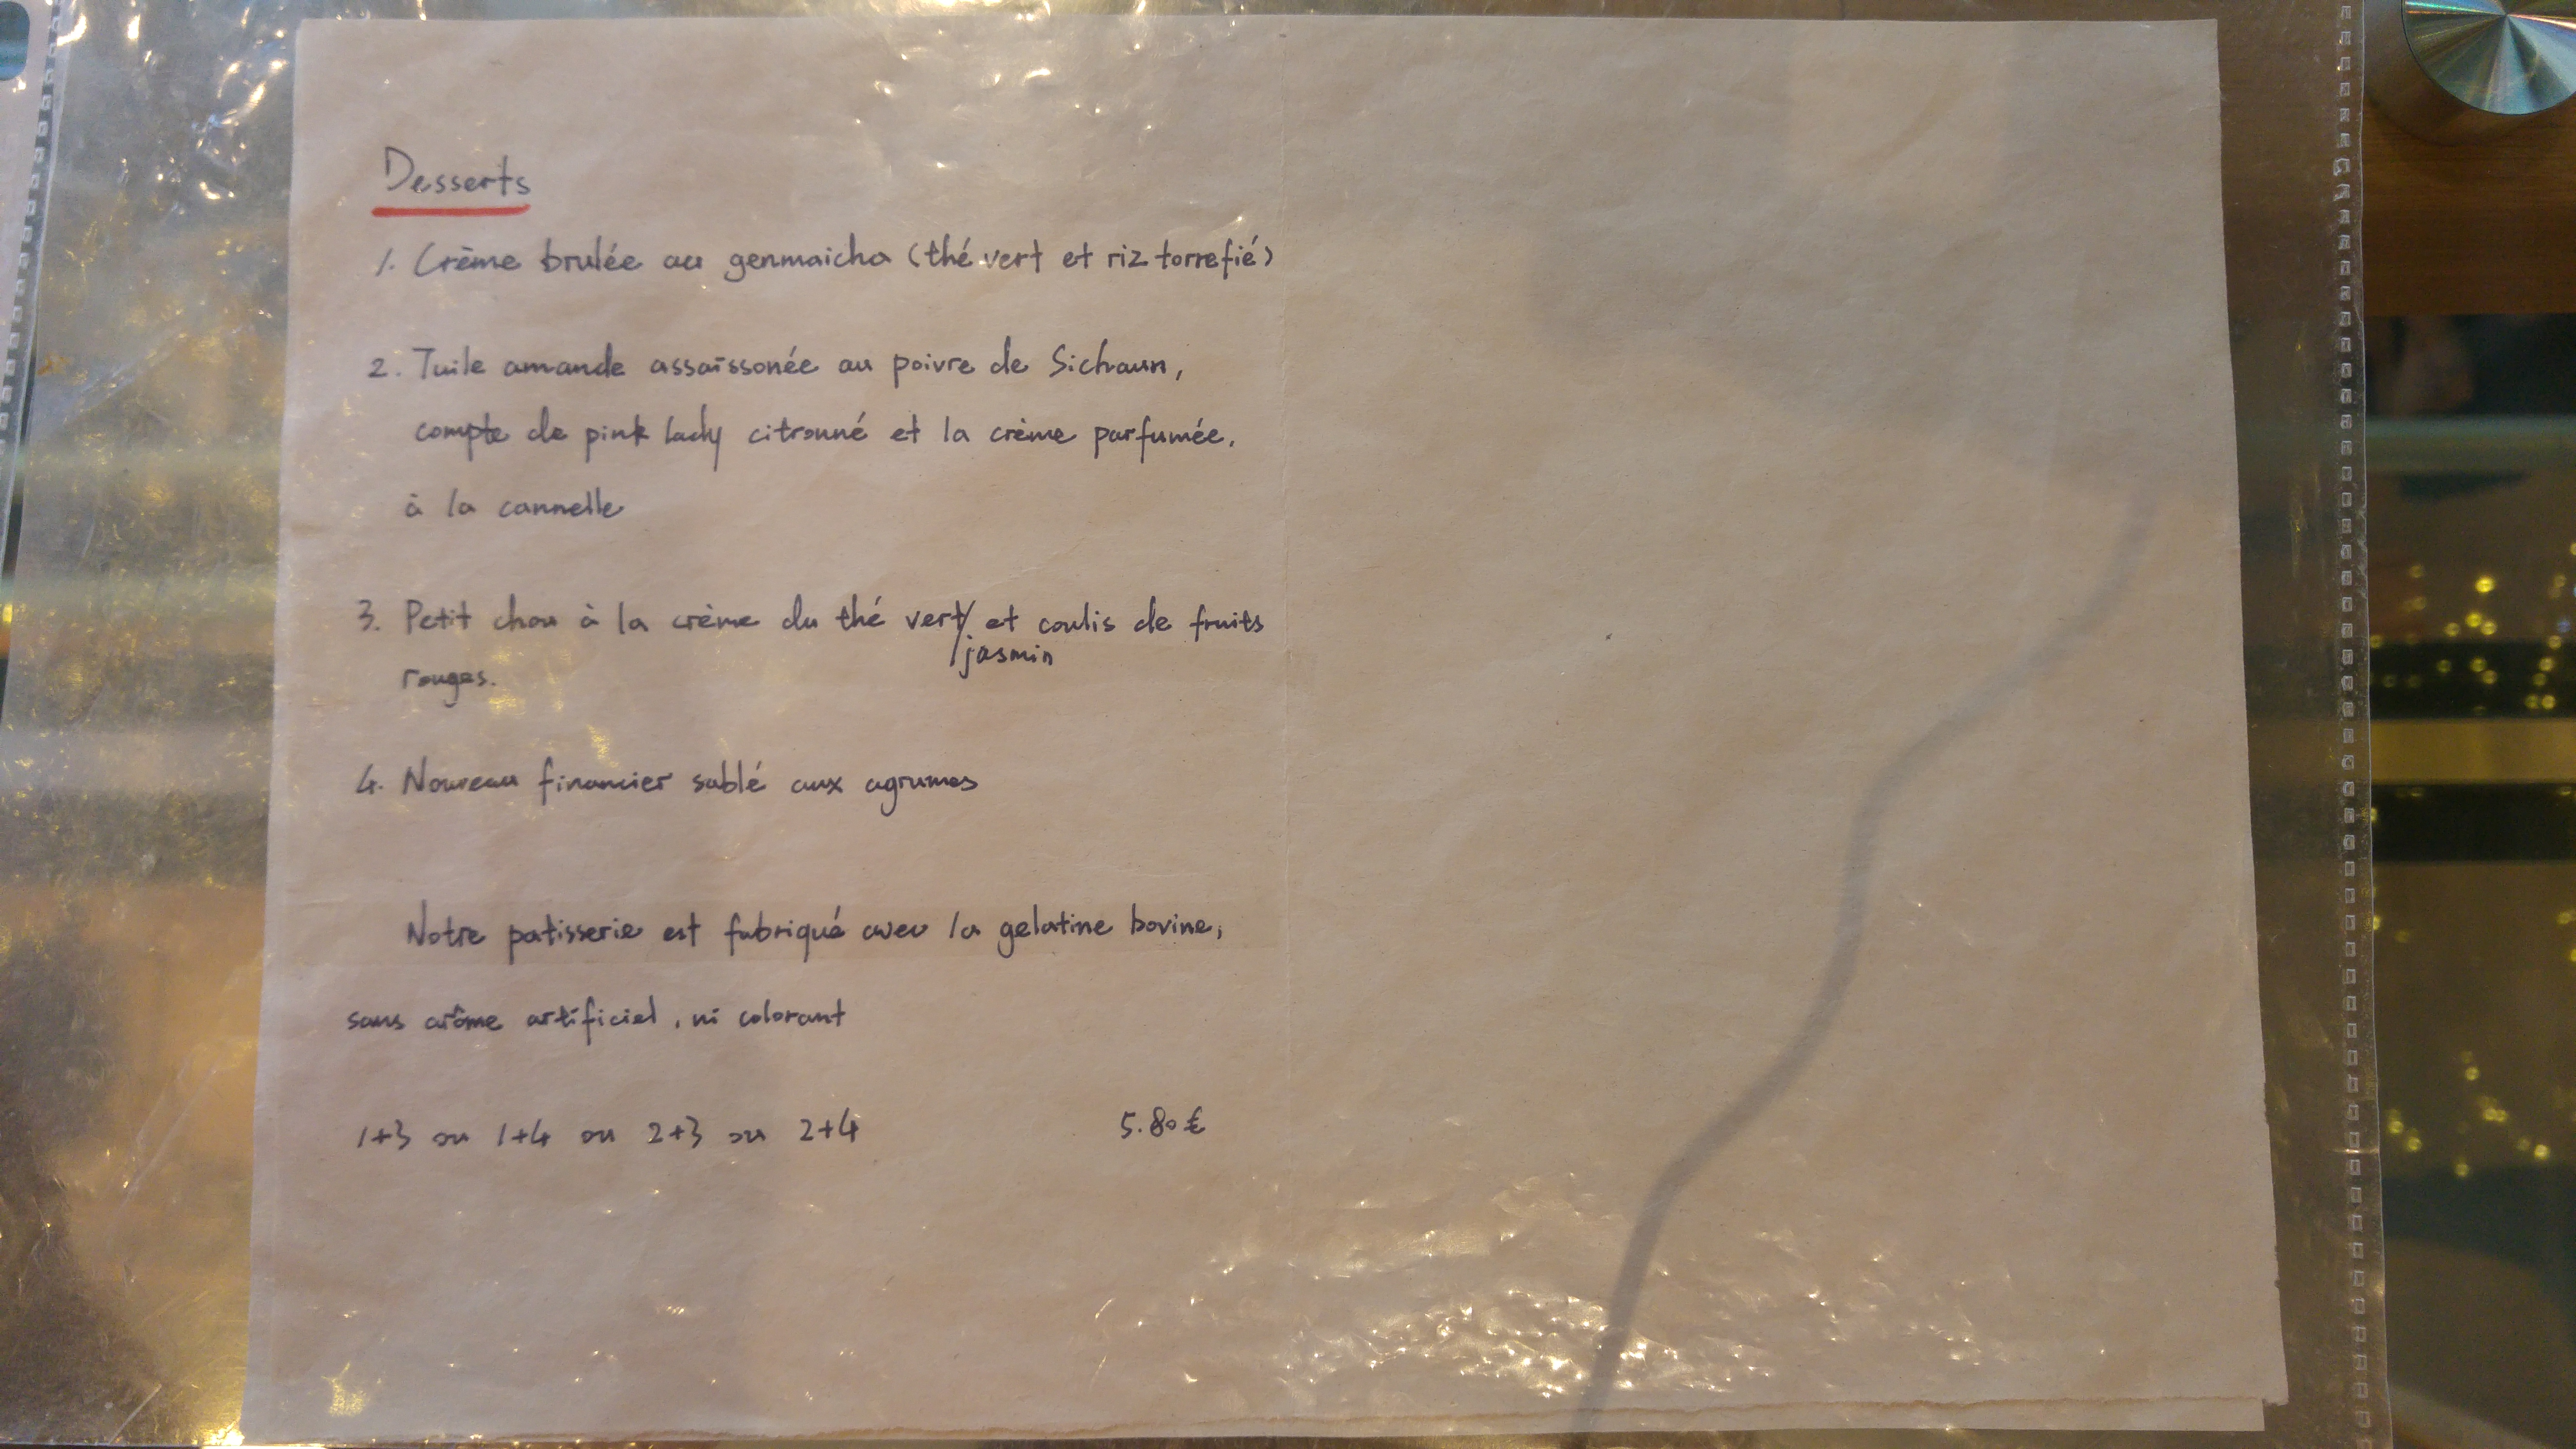 Desserts
1. Crème brulée au genmaicha (thé vert et riz torrefié)
2. Tuile amande assaïssonée au poivre de Sichaun,
compte de pink lady citronné et la crème parfumée,
à la cannelle
3. Petit chou à la crème du thé vert/ et coulis de fruits
jasmin
rouges.
4. Nouveau financier sablé aux agrumes
Notre patisserie est fabriqué avec la gelatine bovine,
sans arôme artificiel, ni colorant
1+3 ou 1+4 ou 2+3 ou 2+4 5.80€